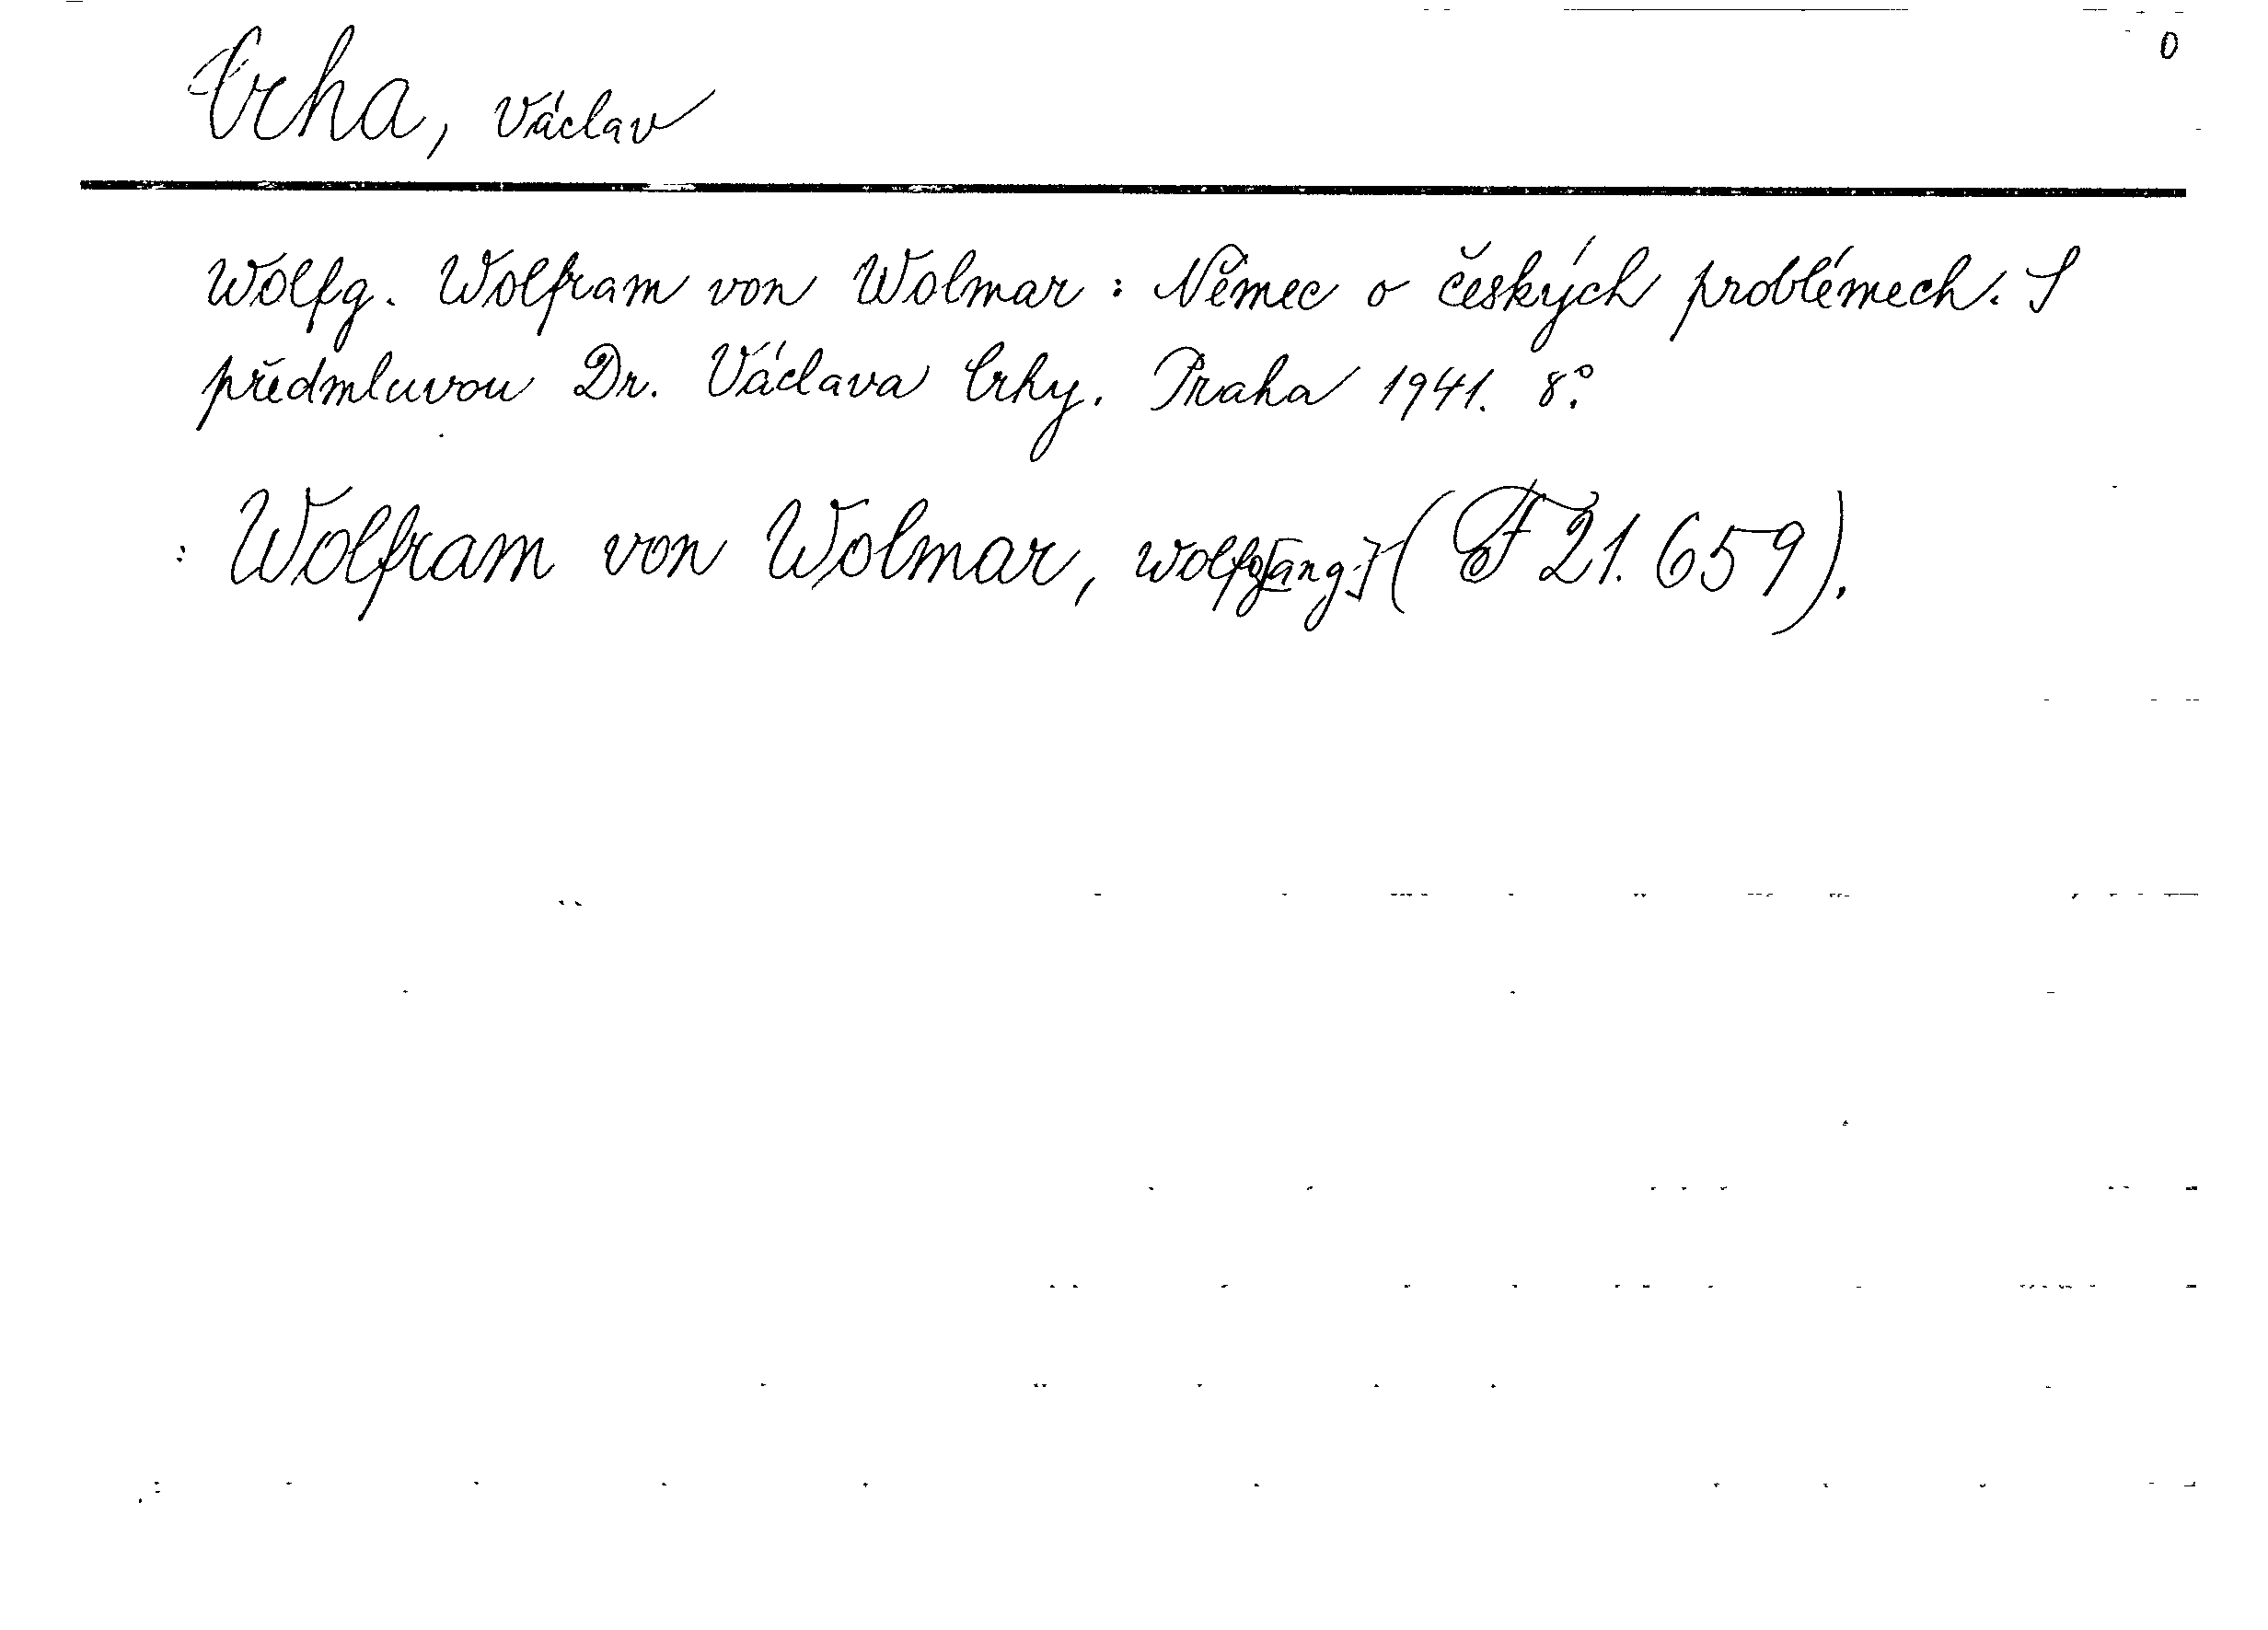 0
Crha, Václav
Wolfg. Wolfram von Wolmar: Němec o českých problémech. S
předmluvou Dr. Václava Crhy. Praha 1941. 8°.
: Wolfram von Wolmar, Wolfg[ang] (F 21.659).